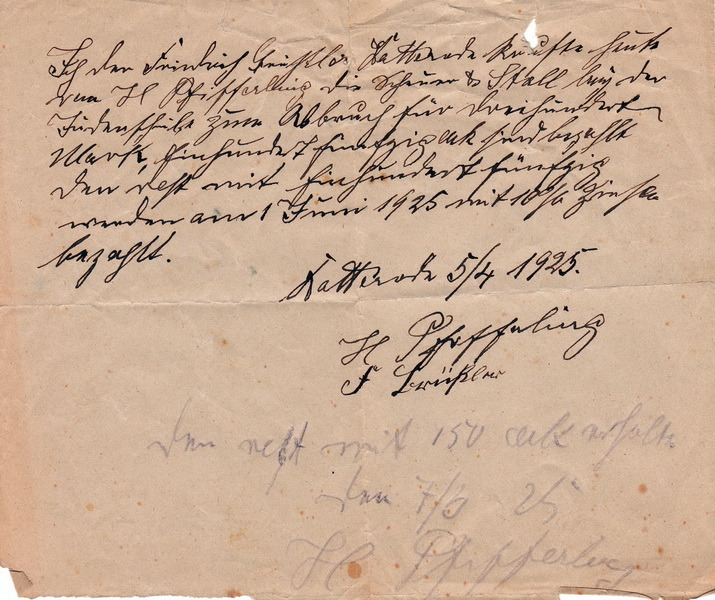 Ich der Friedrich Ratterode kaufte heute
von H Pfifferling die Scheuer & Stall bey der
Judenschule zum Abbruch für dreihundert
Mark, Einhundert fünfzig Mk sind bezahlt
den Rest mit Einhundert fünfzig
werden am 1 Juni 1925 mit 10% Zinsen
bezahlt.
Ratterode 5/4 1925.
H Pfifferling
F
den rest mit 150 Mk erhalten
den 7/6 25
H Pfifferling